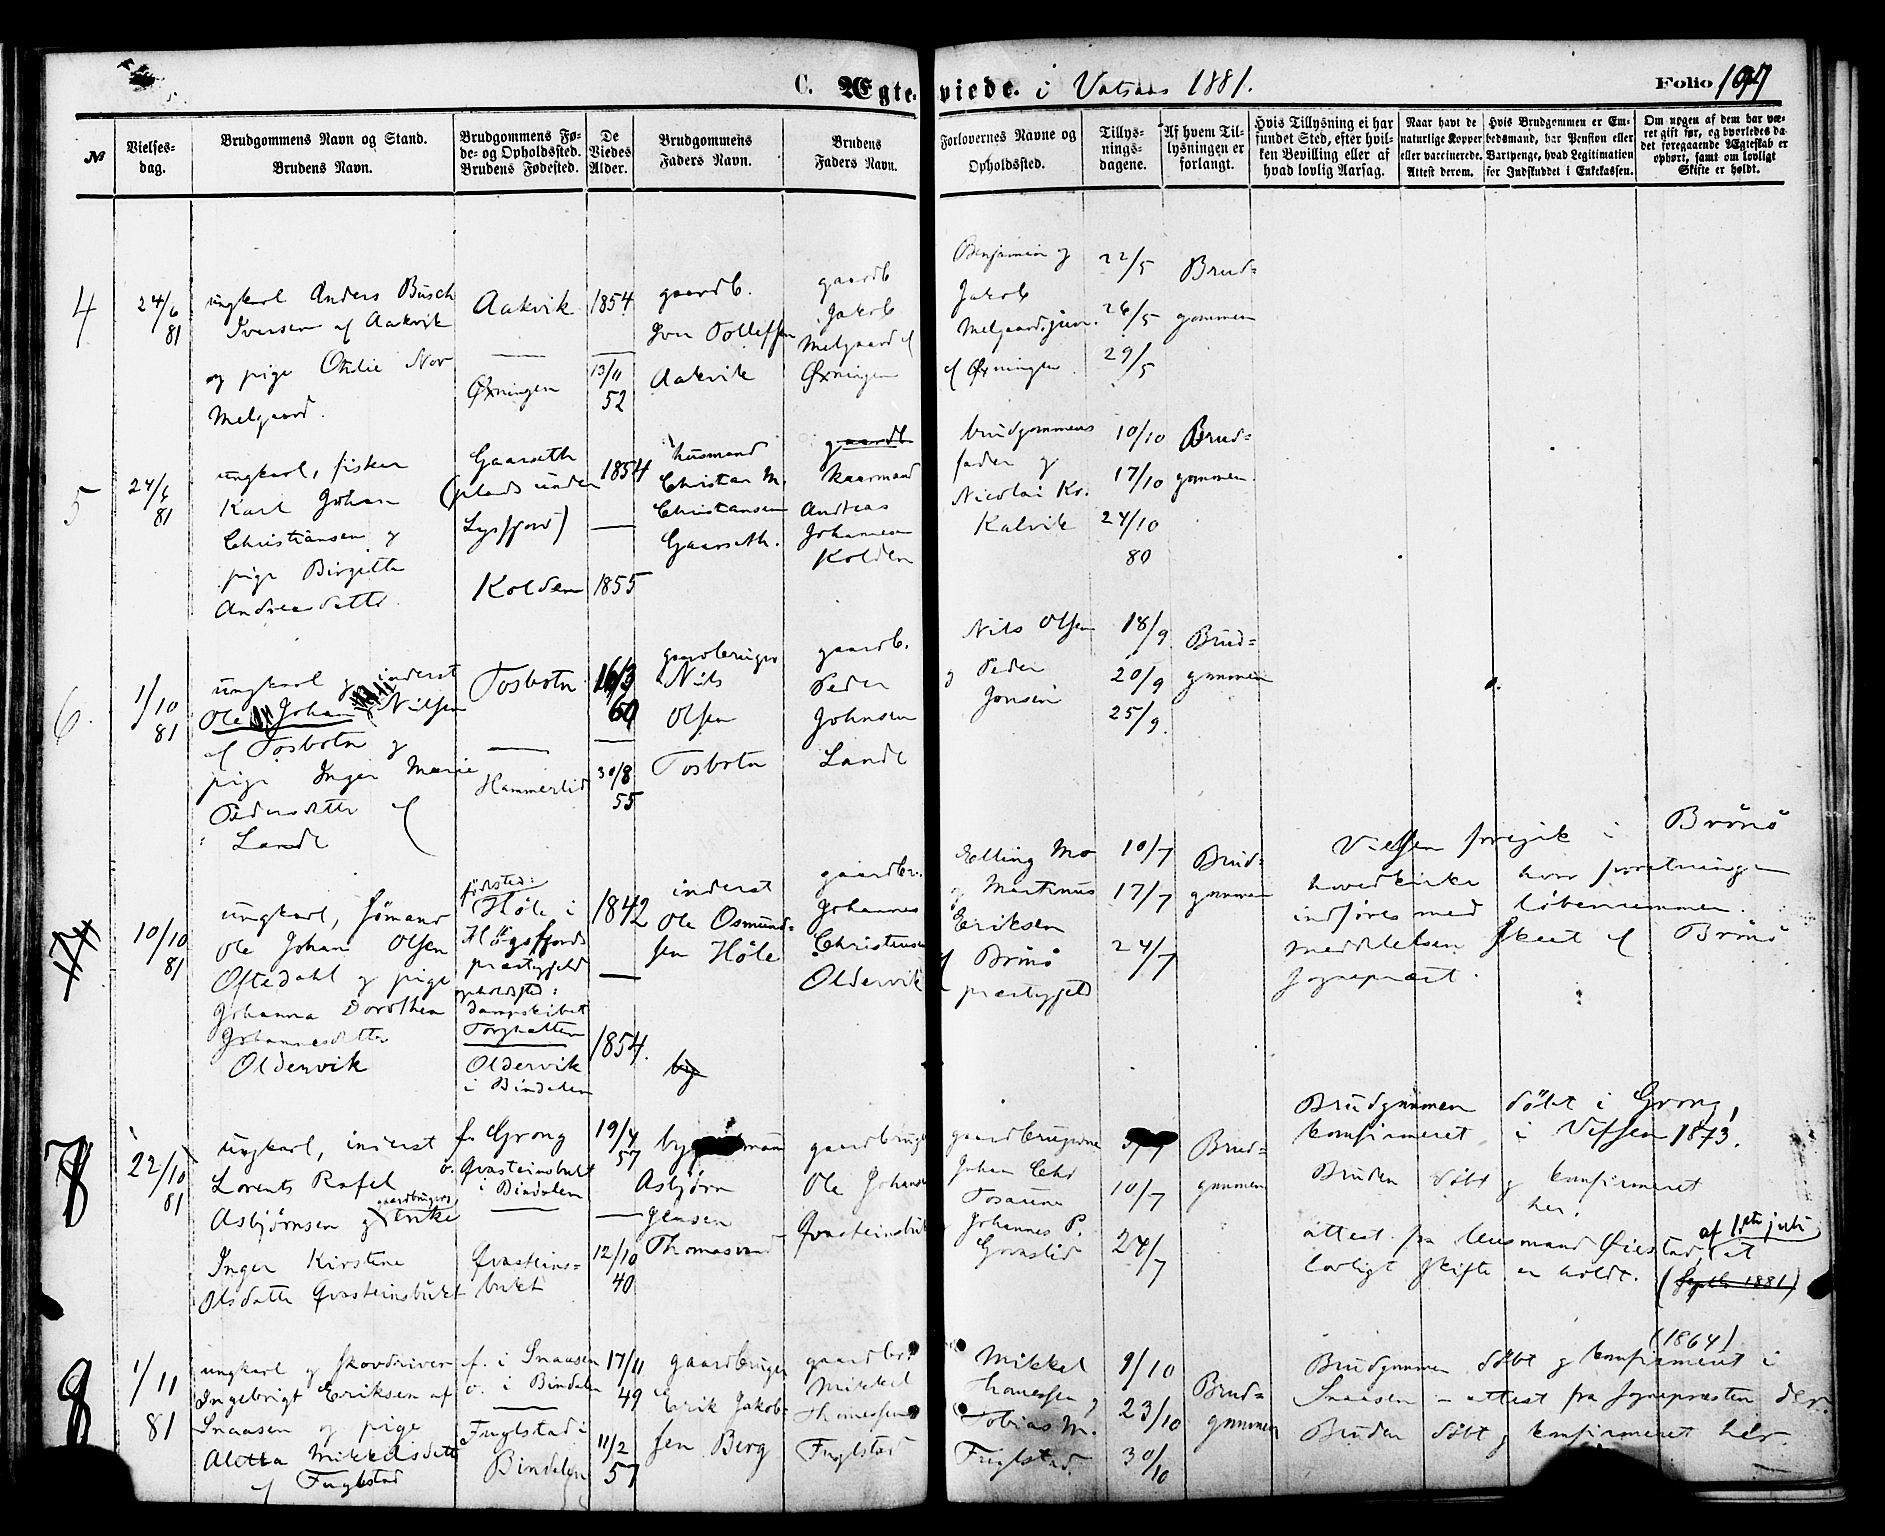 C. Ægteviede. i Vatsaas 1881.
Folio 197
№
Vielses-
dag.
Brudgommens Navn og Stand.
Brudens Navn.
Brudgommens Fø-
de- og Opholdssted.
Brudens Fødested.
De
Viedes
Alder.
Brudgommens
Faders Navn.
Brudens
Faders Navn.
Forlovernes Navne og
Opholdssted.
Tillys-
nings-
dagene.
Af hvem Til-
lysningen er
forlangt.
Hvis Tillysning ei har
fundet Sted, efter hvil-
ken Bevilling eller af
hvad lovlig Aarsag.
Naar havt de
naturlige Kopper
eller vaccinerede.
Attest derom.
Hvis Brudgommen er Em-
bedsmand, har Pension eller
Vartpenge, hvad Legitimation
for Indskuddet i Enkekassen.
Om nogen af dem har væ-
ret gift før, og hvorledes da-
det foregaaende Ægteskab er
ophørt, samt om lovligt
Skifte er holdt.
4
24/6
81
ungkarl Anders Busch
Iversen af Aakvik
og pige Otilie Nor
Melgaard.
Aakvik
Øxningen
1854
13/11
52
gaardb.
Iver Tollefsen
Aakvik
gaardb
Jakob
Melgaard af
Øxningen
Benjamin og
Jakob
Melgaard jun.
af Øxningen
22/5
26/5
29/5
Brud-
gommen
5
24/6
81
ungkarl, fisker
Karl Johan
Christiansen og
pige Birgitta
Andreasdatter
Gaarseth
(plads under
Lysfjord)
Kolden
1854
1855
husmand
Christian M.
Christiansen
Gaarseth.
gaardb
kaarmand
Andreas
Johannesen
Kolden
brudgommens
fader og
Nicolai Kr.
Kalvik
10/10
17/10
24/10
80
Brud-
gommen
6.
1/10
81
ungkarl og inderst
Ole Johan Nilsen
af Tosbotn og
pige Inger Marie
Pedersdatter af
Lande
Tosbotn
Hammerlid
16/3
60
30/8
55
gaardbruger
Nils
Olsen
Tosbotn
gaardb.
Peder
Johnsen
Lande
Nils Olsen
og Peder
Jonsen
18/9
20/9
25/9
Brud-
gommen
10/10
81
ungkarl, sømand
Ole Johan Olsen
Oftedahl og pige
Johanna Dorothea
Johannesdatter
Oldervik
fødested:
Høle i
Høgsfjords
præstegjeld
opholdsted:
dampskibet
Torghatten
Oldervik
i Bindalen
1842
1854.
inderst
Ole Osmund-
sen Höle
gaardbr.
Johannes
Christensen
Oldervik
Elling Mo
og Martinus
Eriksen
af Brönö
præstegjeld
10/7
17/7
24/7
Brud-
gommen
Vielsen foregik i Brönö
hovedkirke hvor forretningen
indføres med løbenummer.
meddelelsen skeet af Brönö
sognepræst.
7
22/10
81
ungkarl, inderst
Lorents Rafel
Asbjørnsen og gaardbrugers enke
Inger Kirstine
Olsdatter Qvasteinsbukt
f. Grong
o. Qvasteinsbukt
i Bindalen
Qvasteins-
bukt
19/4
57
12/10
40
Asbjörn
Jensen
Thomasvand
gaardbruger
Ole Johansen
Qvasteinsbukt
gaardbrugerne
Johan Chr
Tosaune
Johannes P.
10/7
24/7
Brud-
gommen
Brudgommen döbt i Grong,
konfirmeret i Vefsen 1873.
Bruden döbt og konfirmeret
her.
attest fra lensmand Øiestad, af 1ste juli at
lovligt skifte er holdt. (Septb 1881)
8
1/11
81
ungkarl og skovdriver
Ingebrigt Eriksen af
Snaasen og pige
Aletta Mikkelsdatter
af Fuglstad
f. i Snaasen
o. i Bindalen
Fuglstad i
Bindalen
17/11
49
11/2
57
gaardbruger
Erik Jakob-
sen Berg
gaardbr.
Mikkel
Thomessen
Fuglstad
Mikkel
Thomessen og
Tobias M.
Fuglstad.
9/10
23/10
30/10
Brud-
gommen
(1864)
Brudgommen döbt og konfirmeret i
Snaasen - attest fra sognepræsten der.
Bruden döbt og konfirmeret her.